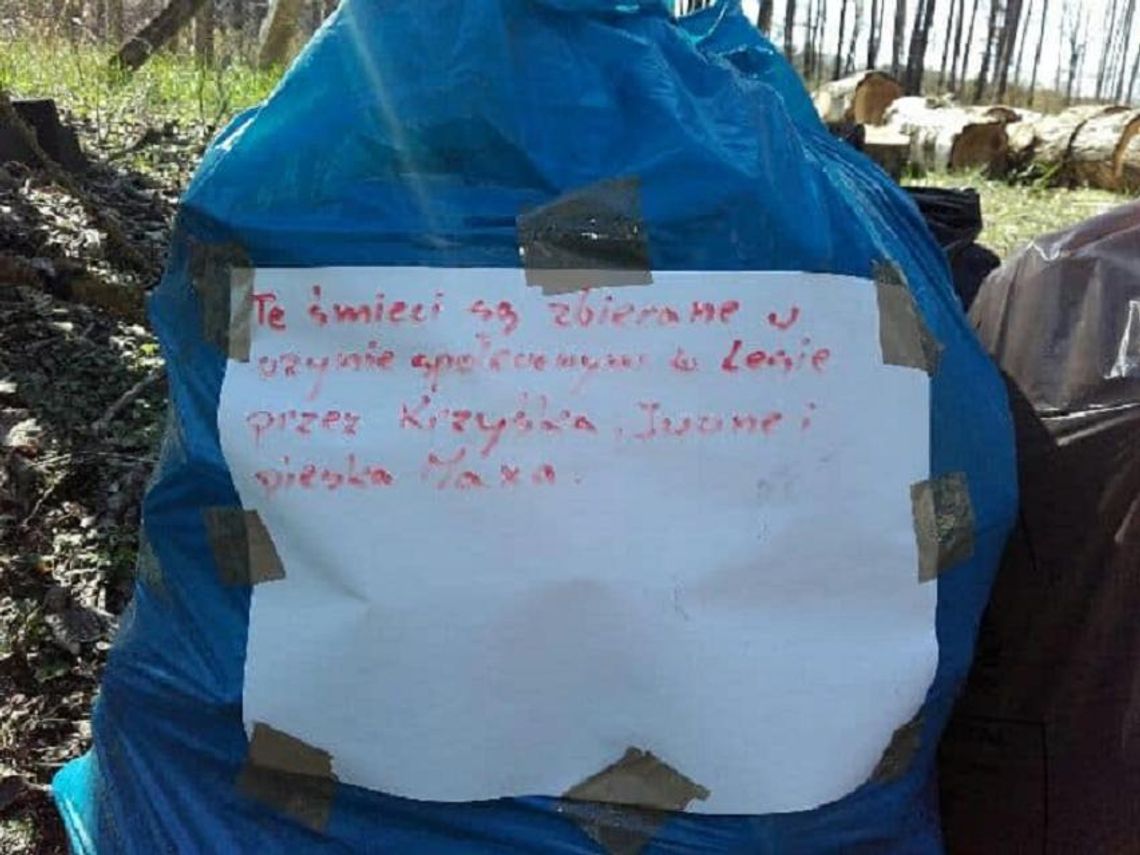 Te śmieci są zbierane w
czynie społecznym w Lesie
przez Krzyśka, Iwonę i
pieska Maxa.